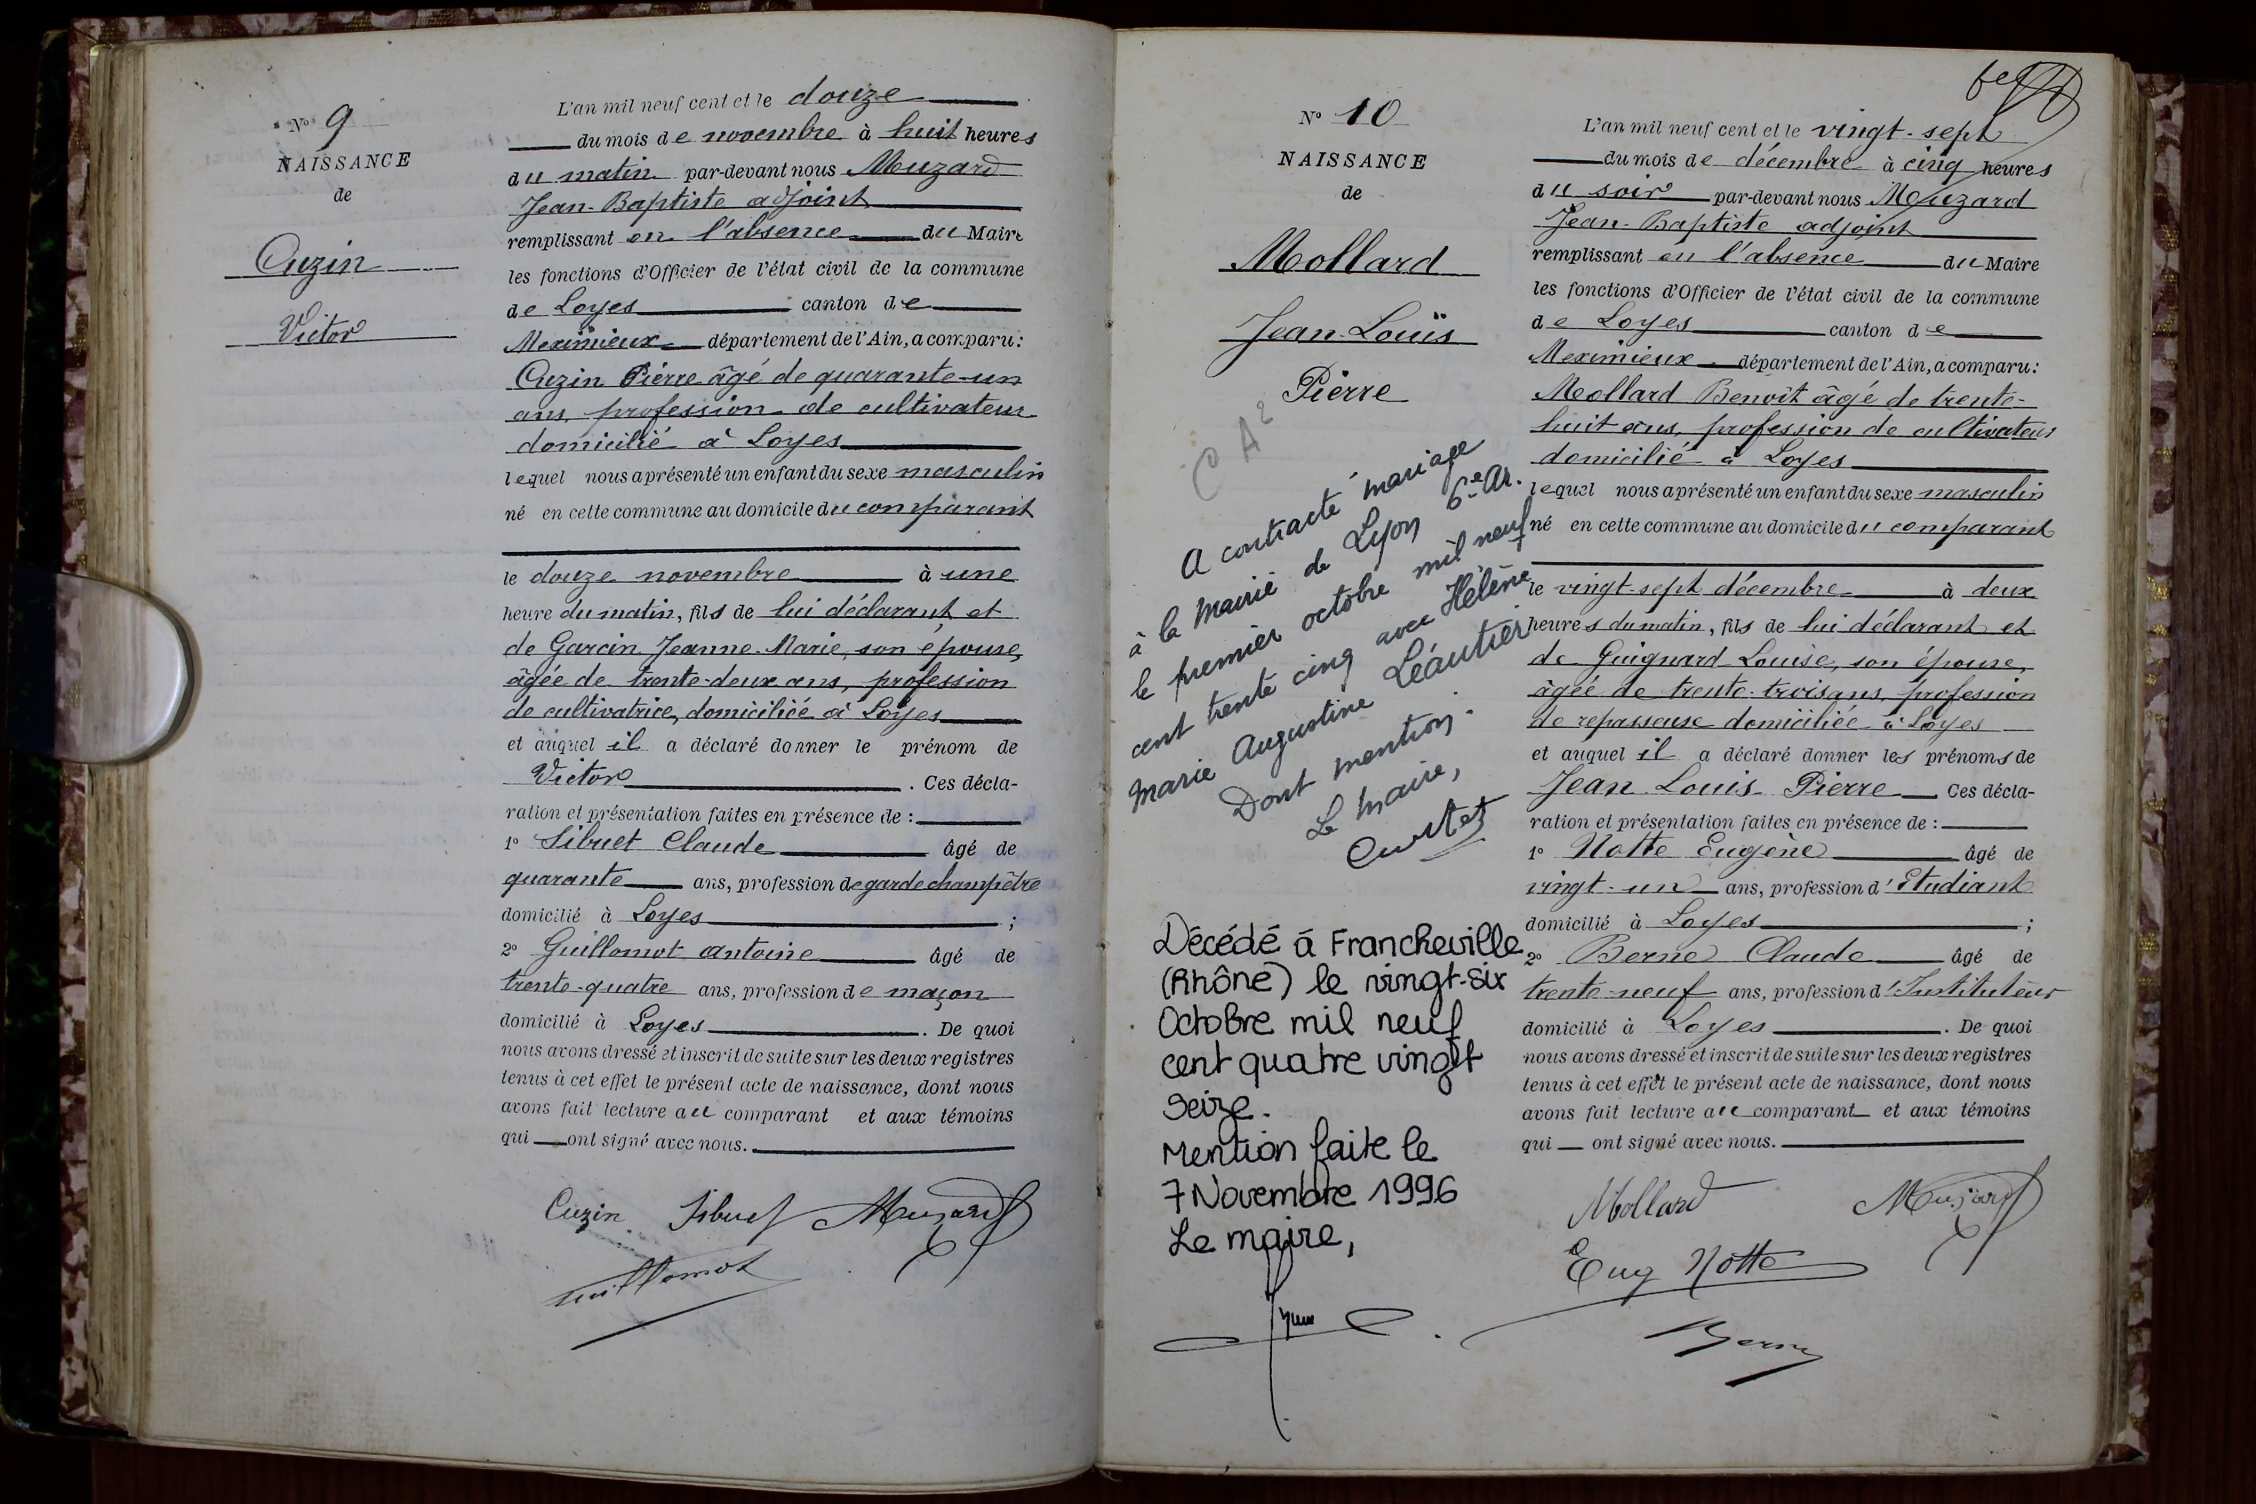 N° 9
NAISSANCE
de
Cuzin
Victor
L'an mil neuf cent et le douze
du mois de novembre à huit heures
du matin par-devant nous Muzard
Jean-Baptiste adjoint
remplissant en l'absence du Maire
les fonctions d'Officier de l'état civil de la commune
de Loyes canton de
Meximieux département de l'Ain, a comparu:
Cuzin Pierre âgé de quarante-un
ans, profession de cultivateur
domicilié à Loyes
lequel nous a présenté un enfant du sexe masculin
né en cette commune au domicile du comparant
le douze novembre à une
heure du matin, fils de lui déclarant et
de Garcin Jeanne-Marie, son épouse,
âgée de trente-deux ans, profession
de cultivatrice, domiciliée à Loyes
et auquel il a déclaré donner le prénom de
Victor . Ces décla-
ration et présentation faites en présence de :
1° Sibuet Claude âgé de
quarante ans, profession de garde champêtre
domicilié à Loyes ;
2° Guillomot Antoine âgé de
trente-quatre ans, profession de maçon
domicilié à Loyes . De quoi
nous avons dressé et inscrit de suite sur les deux registres
tenus à cet effet le présent acte de naissance, dont nous
avons fait lecture au comparant et aux témoins
qui ont signé avec nous.
Cuzin Sibuet Muzard
Guillomot
N° 10
NAISSANCE
de
Mollard
Jean-Louis
Pierre
CA2
A contracté mariage
à la Mairie de Lyon 6e Ar.
le premier octobre mil neuf
cent trente cinq avec Hélène
Marie Augustine Léautier
Dont mention.
Le Maire,
Décédé á Francheville
(Rhône) le vingt-six
Octobre mil neuf
cent quatre vingt
seize.
Mention faite le
7 Novembre 1996
Le maire,
L'an mil neuf cent et le vingt-sept
du mois de décembre à cinq heures
du soir par-devant nous Muzard
Jean-Baptiste adjoint
remplissant en l'absence du Maire
les fonctions d'Officier de l'état civil de la commune
de Loyes canton de
Meximieux département de l'Ain, a comparu:
Mollard Benoît âgé de trente-
huit ans, profession de cultivateur
domicilié à Loyes
lequel nous a présenté un enfant du sexe masculin
né en cette commune au domicile du comparant
le vingt-sept décembre à deux
heures du matin, fils de lui déclarant et
de Guignard Louise, son épouse,
âgée de trente-trois ans, profession
de repasseuse domiciliée à Loyes
et auquel il a déclaré donner les prénoms de
Jean Louis Pierre Ces décla-
ration et présentation faites en présence de :
1° Notte Eugène âgé de
vingt-un ans, profession d'Etudiant
domicilié à Loyes ;
2° Berne Claude âgé de
trente-neuf ans, profession d'Instituteur
domicilié à Loyes . De quoi
nous avons dressé et inscrit de suite sur les deux registres
tenus à cet effet le présent acte de naissance, dont nous
avons fait lecture au comparant et aux témoins
qui ont signé avec nous.
Mollard Muzard
Eug Notte
Berne